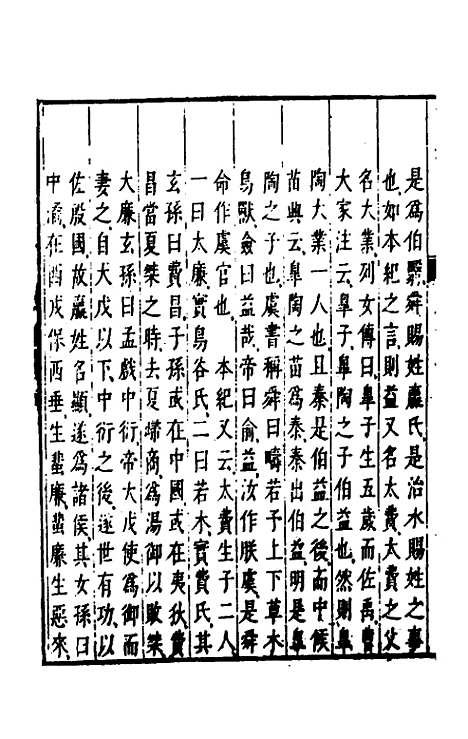 是爲伯翳舜賜姓嬴氏是治水賜姓之事
也如本紀之言則益又名太費太費之父
名大業列女傳曰皐子生五歲而佐禹曹
大家注云皐子皐陶之子伯益也然則皐
陶大業一人也且秦是伯益之後而中候
苗興云皐陶之苗爲秦秦出伯益明是皐
陶之子也虞書稱舜曰疇若予上下草木
鳥獸僉曰益哉帝曰俞益汝作朕虞是舜
命作虞官也　本紀又云太費生子二人
一曰太廉實鳥谷氏二曰若木實費氏其
玄孫曰費昌子孫或在中國或在夷狄費
昌當夏桀之時去夏歸商爲湯御以敗桀
大廉玄孫曰孟戲中衍帝大戊使爲御而
妻之自大戊以下中衍之後遂世有功以
佐殷國故嬴姓名顯遂爲諸侯其玄孫曰
中潏在西戎保西垂生蜚廉蜚廉生惡來